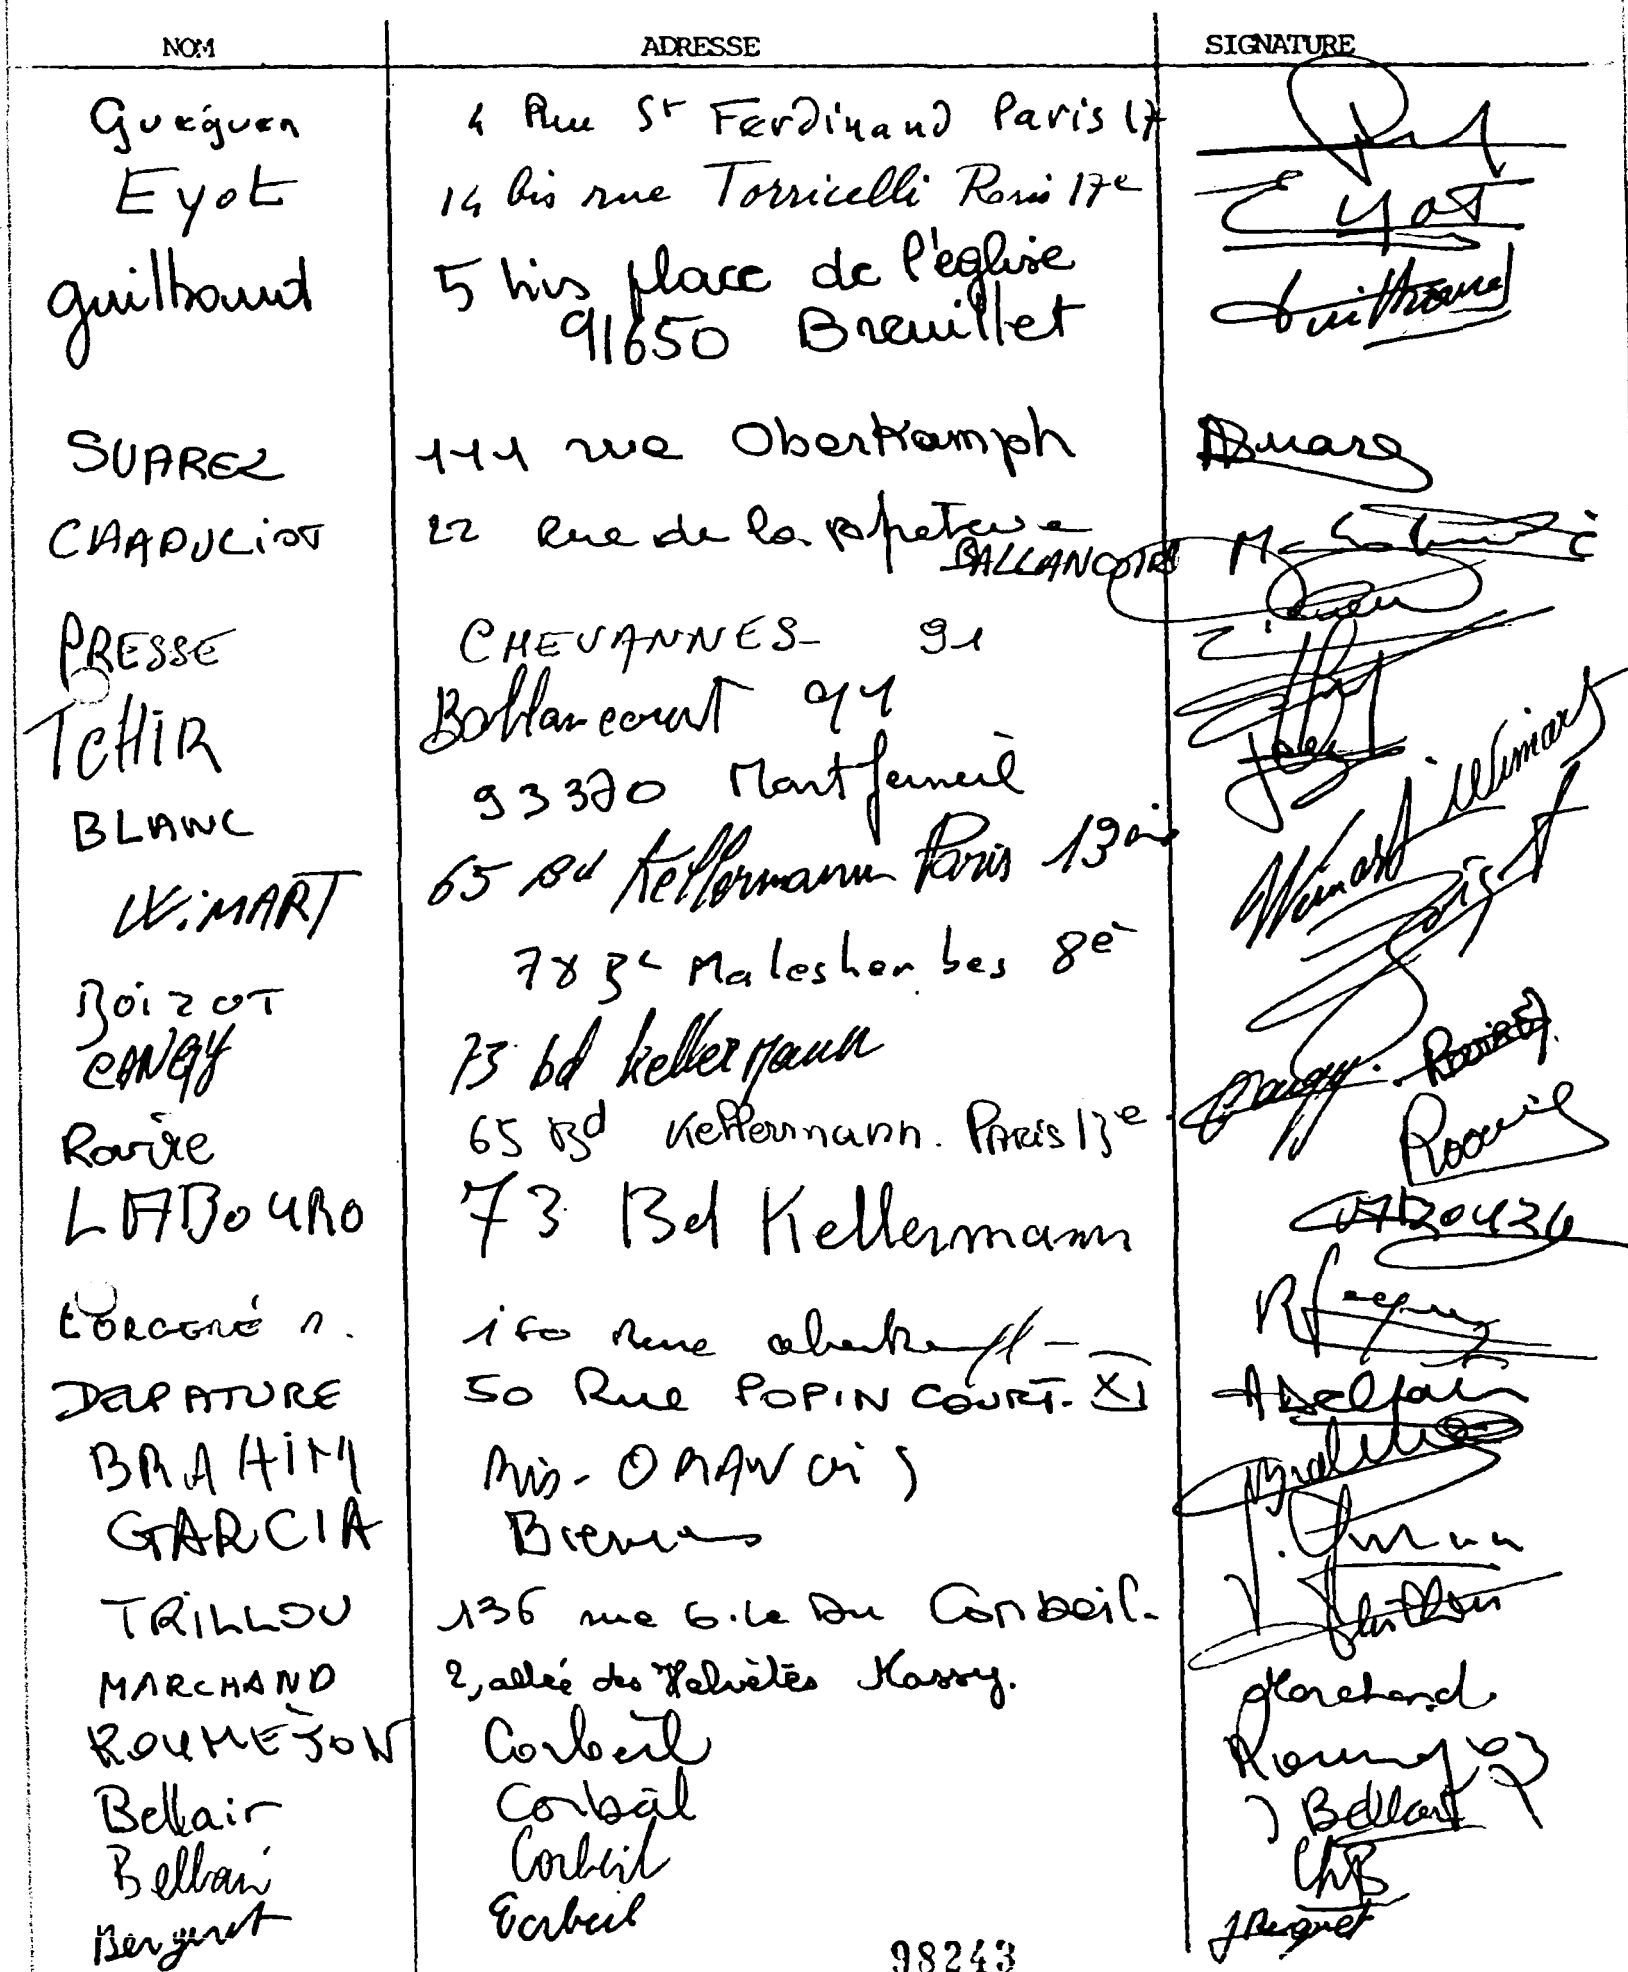 NOM ADRESSE SIGNATURE
Guéguen 4 Rue St Ferdinand Paris 17
Eyot 14 bis rue Torricelli Paris 17e Eyot
Guilbaud 5 bis place de l'église Guilbaud
91650 Breuillet
SUAREZ 111 rue Oberkamph ASuarez
CHADULIOT 22 Rue de la
BALLANCOURT
PRESSE CHEVANNES - 91
TCHIR Ballancourt 91
BLANC 93370 Montfermeil
WIMART 65 Bd Kellermann Paris 13ème Wimart Wimart
BOIZOT 78 Bd Malesherbes 8è
CANGY 73 bd kellermann
Ravire 65 Bd Kellermann. PARIS 13e
LABOURO 73 Bd Kellermann
160 Rue oberkampf -
DELPATURE 50 Rue POPINCOURT. XI
BRAHIMI Ris-ORANGIS Brahimi
GARCIA
TRILLOU 136 rue Corbeil-
MARCHAND 2, allée des Helvètes Massy. Marchand
ROUMÉJON Corbeil
Bellair Corbeil J Bellair
Bellair Corbeil ChB
Berguet Corbeil JBerguet
98243